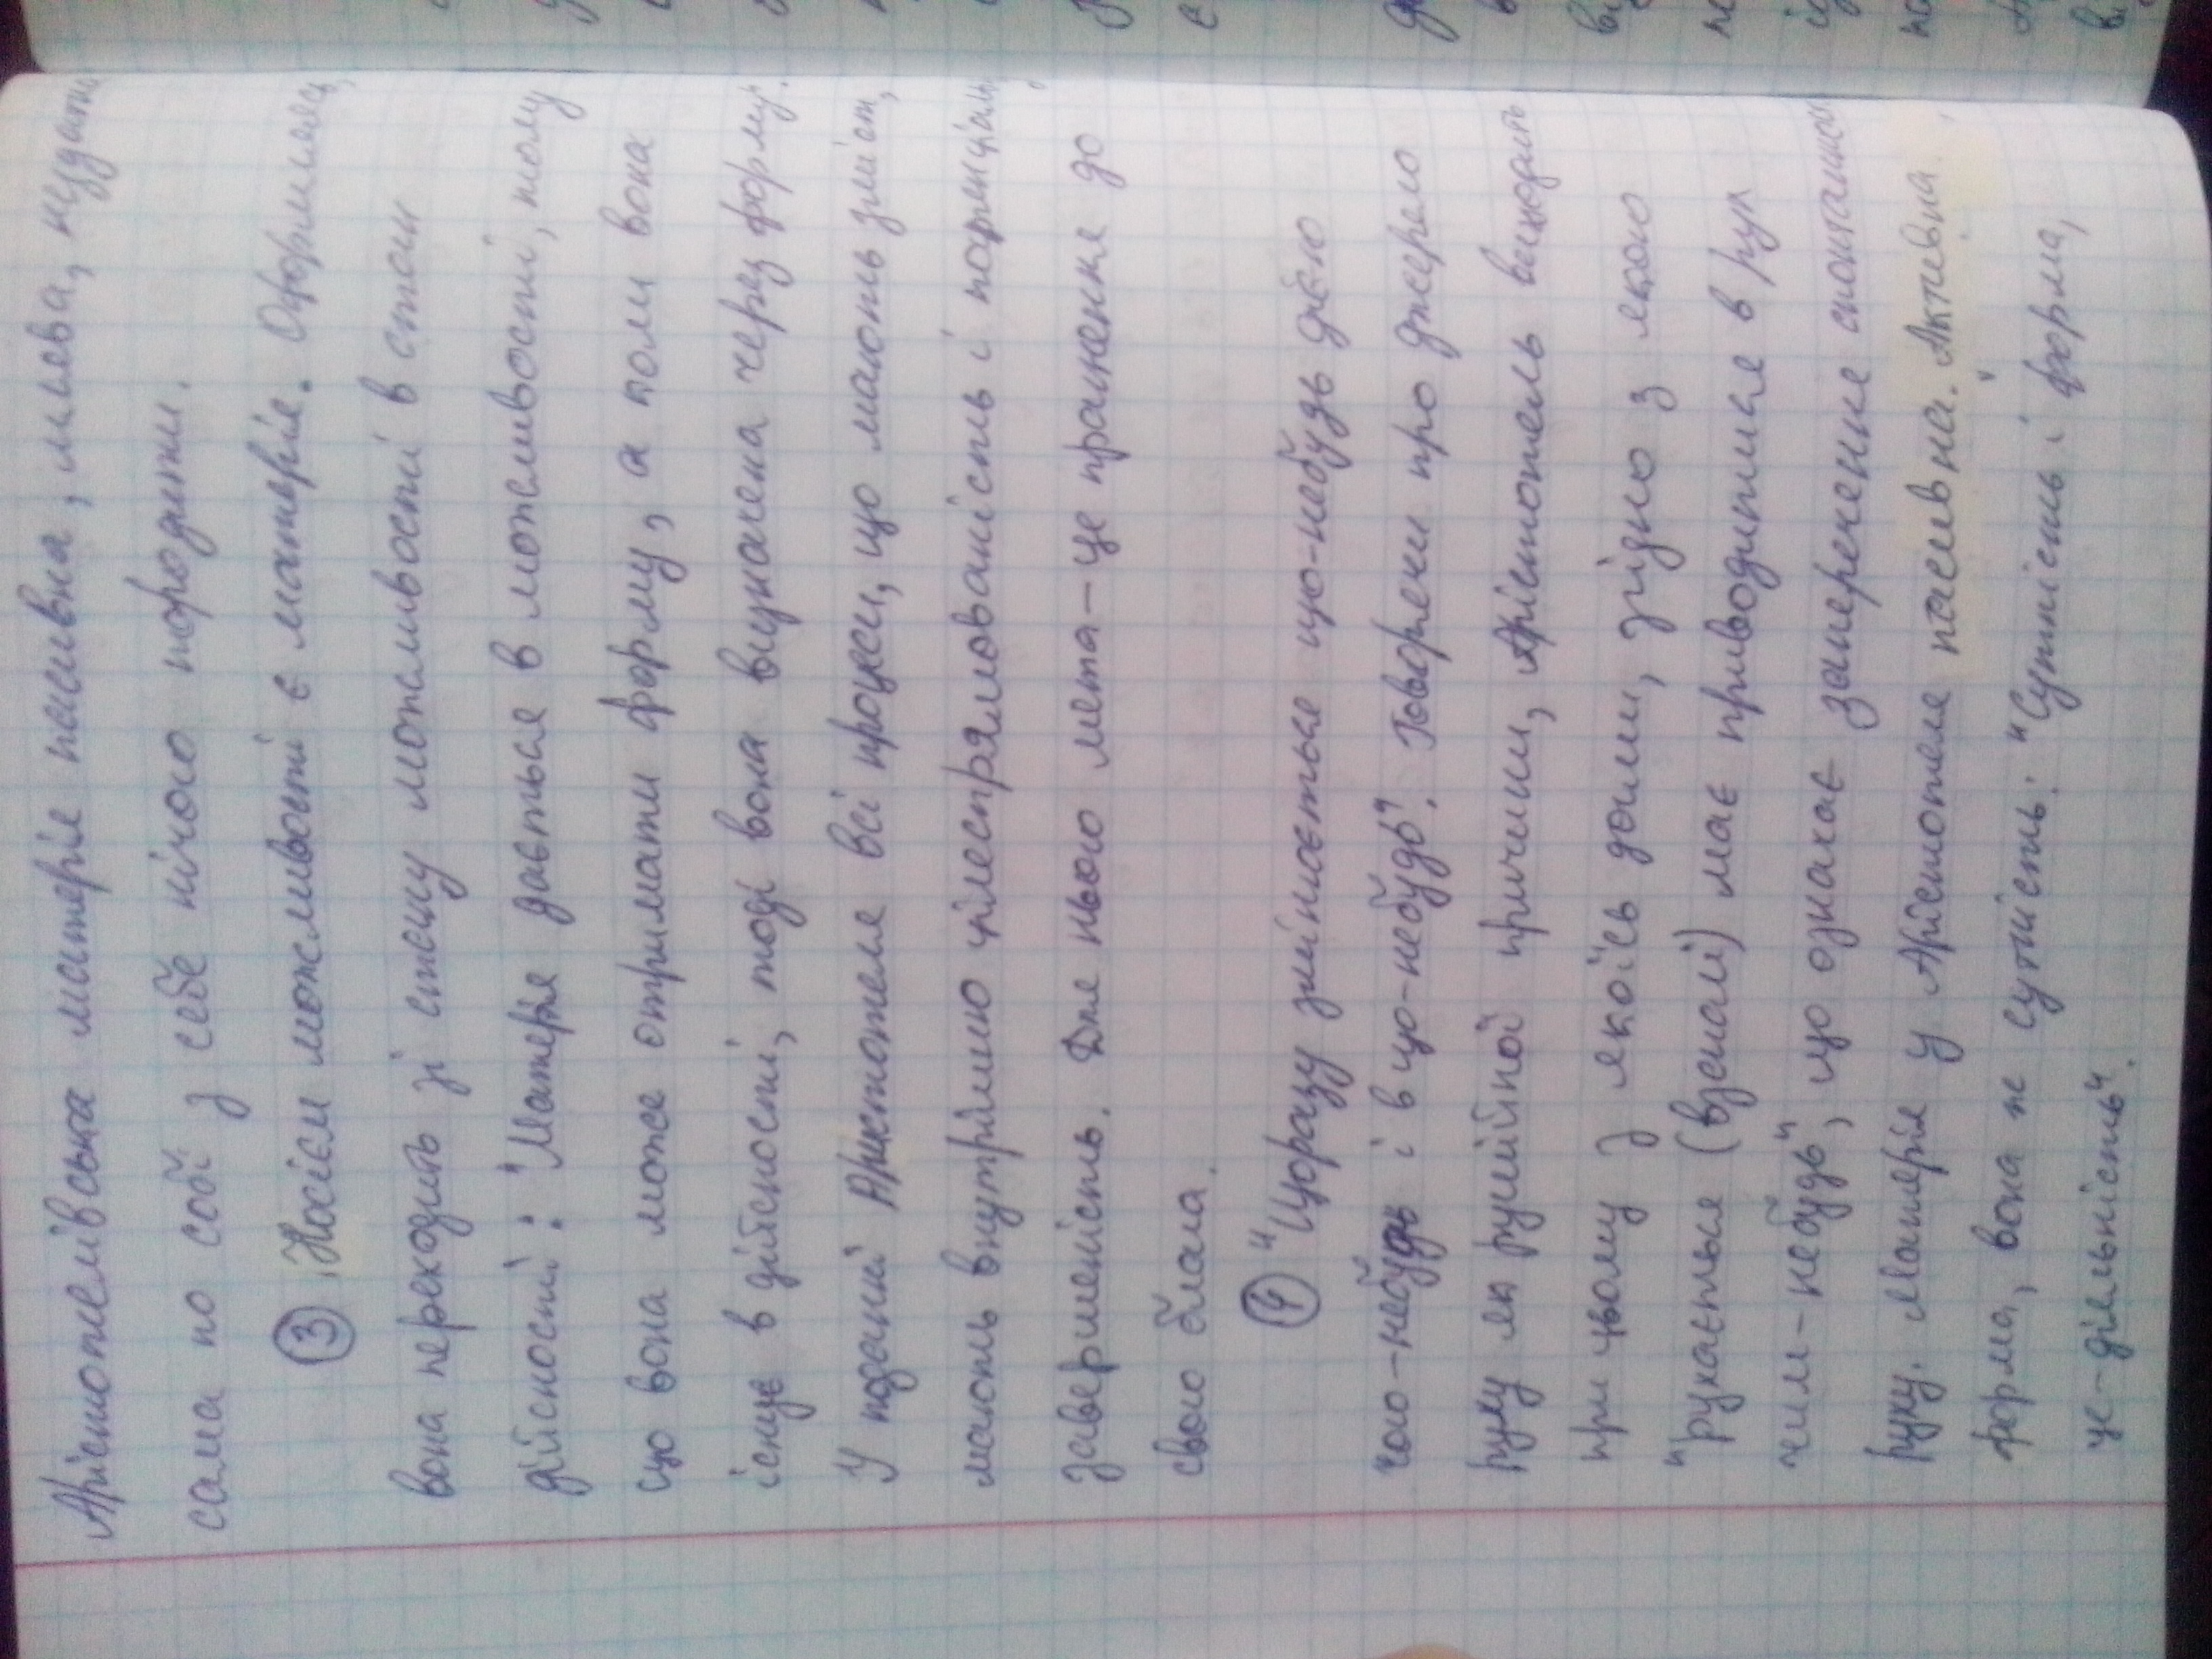 Арістотелівська матерія пасивна, млява, нездатна
сама по собі з себе нічого породити.
③ Носієм можливості є матерія. Оформляясь,
вона переходить зі стану можливості в стан
дійсності: "Матерія дається в можливості, тому
що вона може отримати форму, а коли вона
існує в дійсності, тоді вона визначена через форму".
У поданні Аристотеля всі процеси, що мають зміст,
мають внутрішню цілеспрямованість і потенціальну
завершеність. Для нього мета – це прагнення до
свого блага.
④ "Щоразу змінюється що-небудь дією
чого-небудь і в що-небудь". Говорячи про джерело
руху як рушійної причини, Арістотель виходить
при цьому з якоїсь догми, згідно з якою
"рухається (взагалі) має приводитися в рух
чим-небудь", що означає заперечення спонтанного
руху. Матерія у Арістотеля пасивна. Активна
форма, вона ж сутність: "Сутність і форма,
це-діяльність".